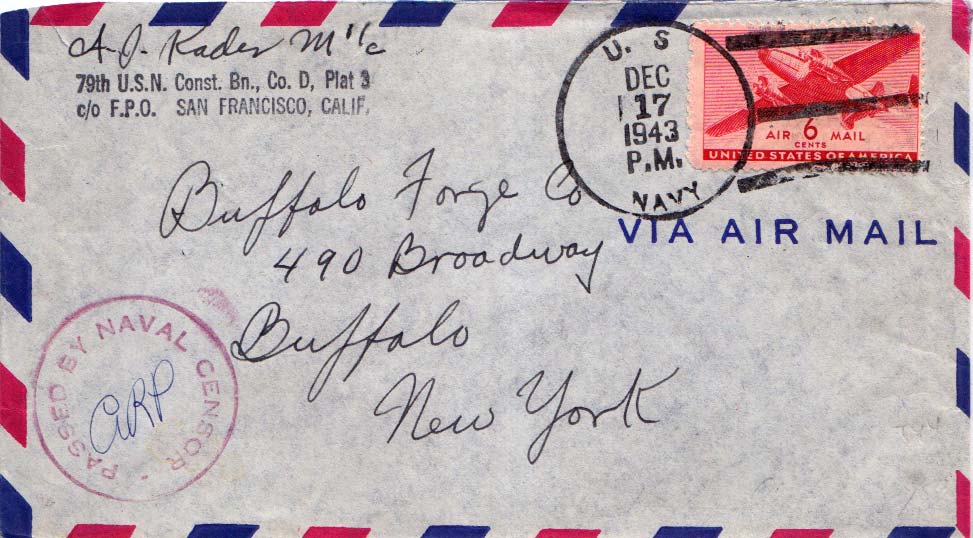 A. J. Kader M 1/c
79th U.S.N. Const. Bn., Co. D, Plat 3
c/o F.P.O. SAN FRANCISCO, CALIF.
U. S.
DEC
17
1943
P.M.
NAVY
AIR 6 MAIL
CENTS
UNITED STATES OF AMERICA
VIA AIR MAIL
Buffalo Forge Co
490 Broadway
Buffalo
New York
PASSED BY NAVAL CENSOR
ARP